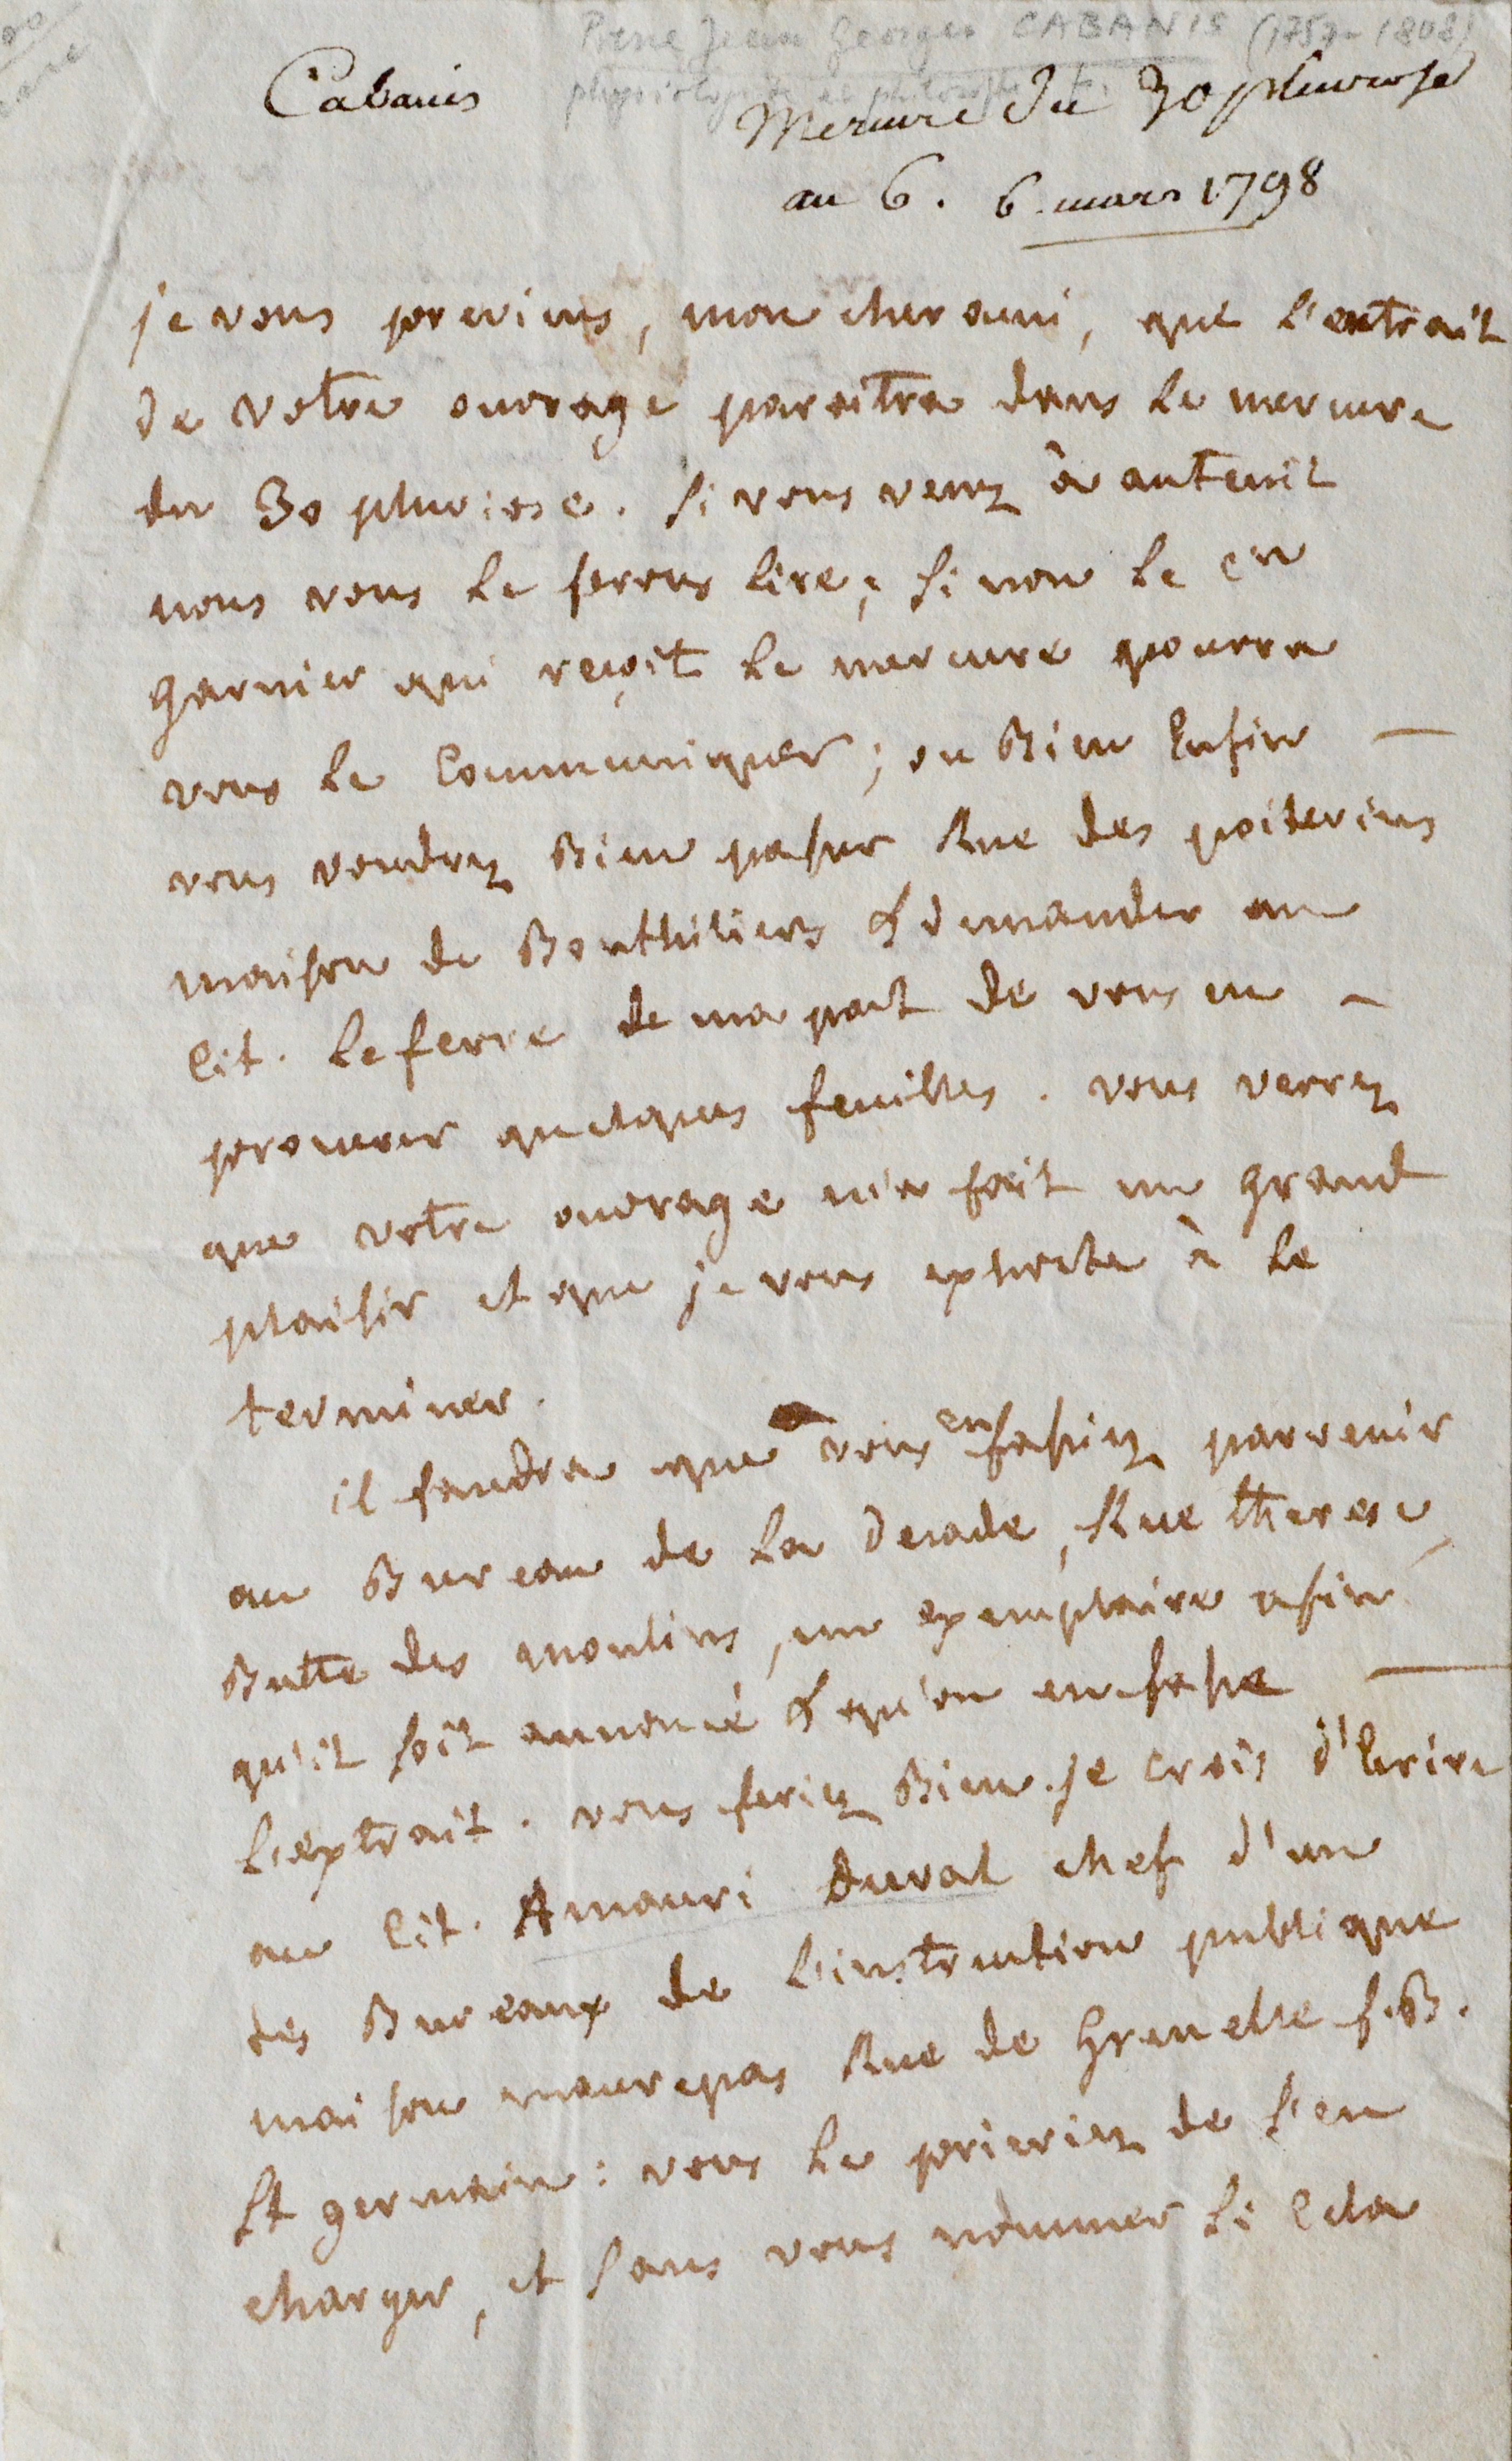 Pierre Jean Georges CABANIS (1757-1808)
physiologiste et philosophe
Cabanis
Mercure du 30 pluviose
an 6. 6 mars 1798
je vous previens, mon cher ami, que l'extrait
de votre ouvrage paroitra dans le mercure
du 30 pluviose. si vous venez à auteuil
nous vous le ferons lire; si non le cn
garnier qui reçoit le mercure pourra
vous le communiquer; ou Bien enfin —
vous voudrez Bien passer Rue des poitevins
maison de Bouthiliers & demander au
Cit. Lefevre de ma part de vous en —
procurer quelques feuilles. vous verrez
que votre ouvrage m'a fait un grand
plaisir et que je vous exhorte à le
terminer.
il faudra que vous en fassiez parvenir
au Bureau de la decade, Rue therese,
Butte des moulins, un exemplaire afin
qu'il soit annoncé & qu'on en fasse —
l'extrait. vous feriez Bien je crois d'Ecrire
au Cit. Amauri Duval chef d'un
des Bureaux de l'instruction publique
maison maurepas Rue de Grenelle f.B.
St germain: vous le prieriez de s'en
charger, et sans vous nommer si cela